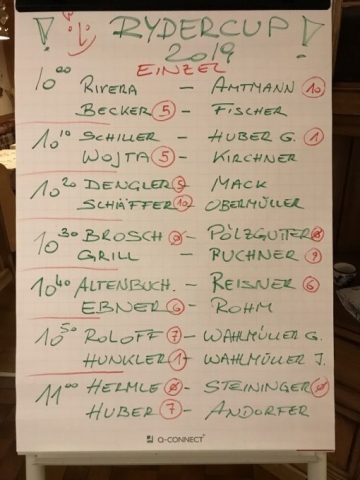 ! RYDERCUP !
2019
EINZEL
10⁰⁰ RIVERA - AMTMANN 10
BECKER 5 - FISCHER
10¹⁰ SCHILLER - HUBER G. 1
WOJTA 5 - KIRCHNER
10²⁰ DENGLER 5 - MACK
SCHÄFFER 10 - OBERMÜLLER
10³⁰ BROSCH 0 - PÖLZGUTTER 0
GRILL - PUCHNER 9
10⁴⁰ ALTENBUCH. - REISNER 6
EBNER 6 - ROHM
10⁵⁰ ROLOFF 7 - WAHLMÜLLER G.
HUNKLER 1 - WAHLMÜLLER J.
11⁰⁰ HERMLE 0 - STEININGER 0
HUBER 7 - ANDORFER
Q-CONNECT